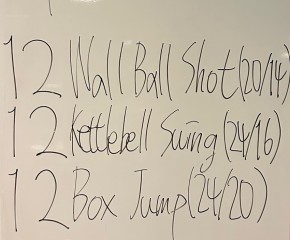 12 Wall Ball Shot (20/14)
12 Kettlebell Swing (24/16)
12 Box Jump (24/20)